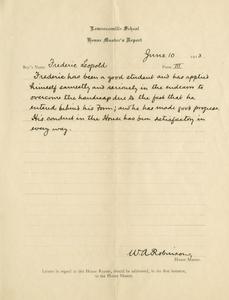 Lawrenceville School
House Master's Report
June 10 1913
Boy's Name, Frederic Leopold Form III
Frederic has been a good student and has applied
himself earnestly and seriously in the endeavor to
overcome the handicap due to the fact that he
entered behind his Form; and he has made good progress.
His conduct in the House has been satisfactory in
every way.
W. A. Robinson,
House Master.
Letters in regard to the House Report, should be addressed, in the first instance,
to the House Master.